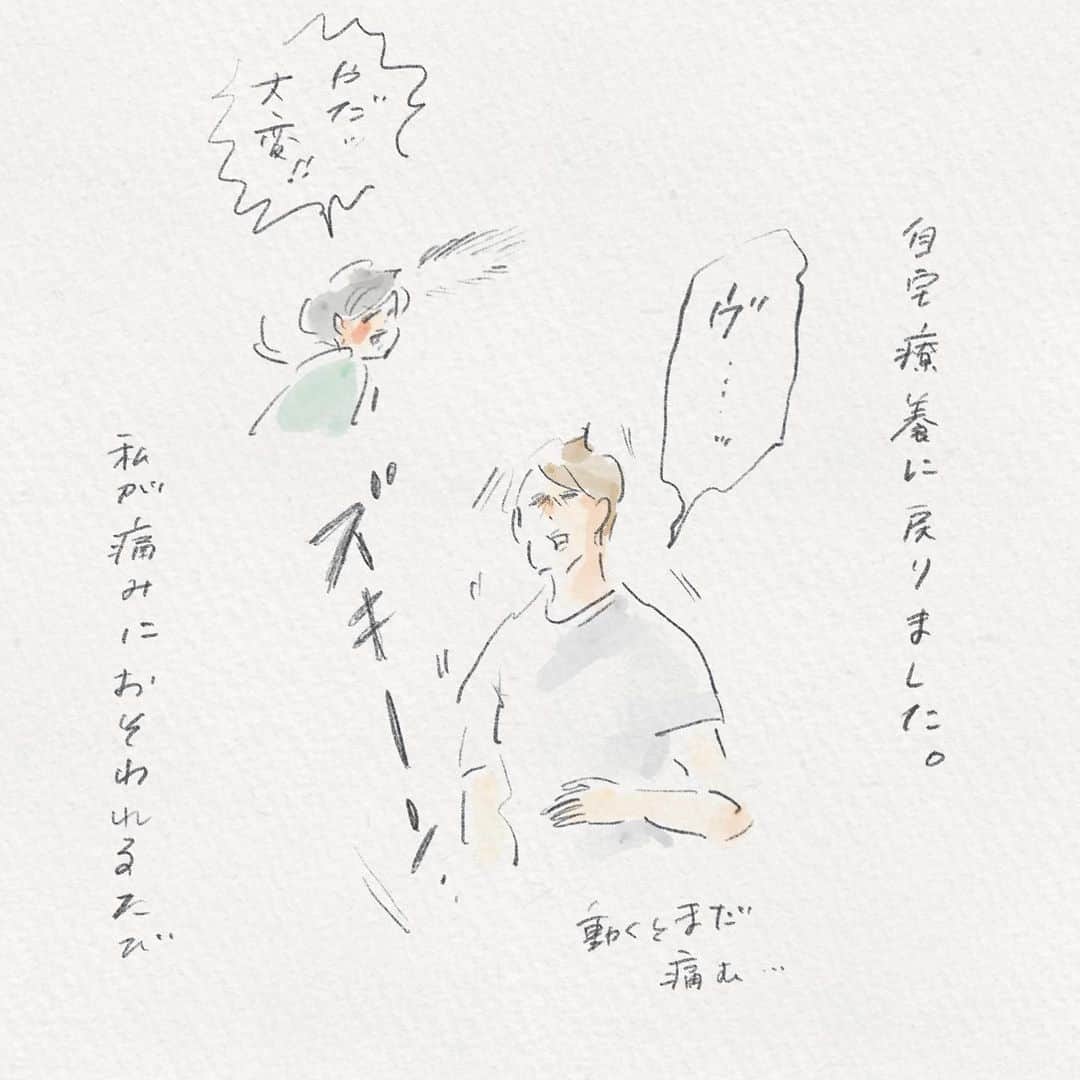 自宅療養に戻りました。
ヴ…ッ
動くとまだ
痛む…
ズキーーン
やだッ
大変!!
私が痛みにおそわれるたび